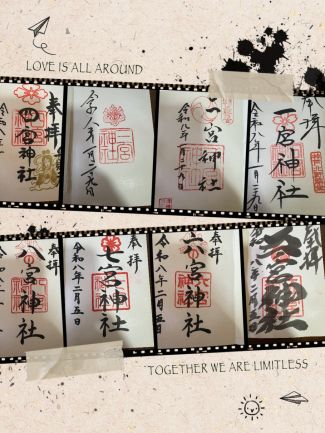 LOVE IS ALL AROUND
奉拝
四宮神社
令和八年一月二十九日
二宮神社
令和八年一月
奉拝
一宮神社
令和八年一月二十九日
奉拝
八宮神社
奉拝
七宮神社
令和八年二月五日
奉拝
六宮神社
令和八年二月五日
奉拝
五宮神社
TOGETHER WE ARE LIMITLESS